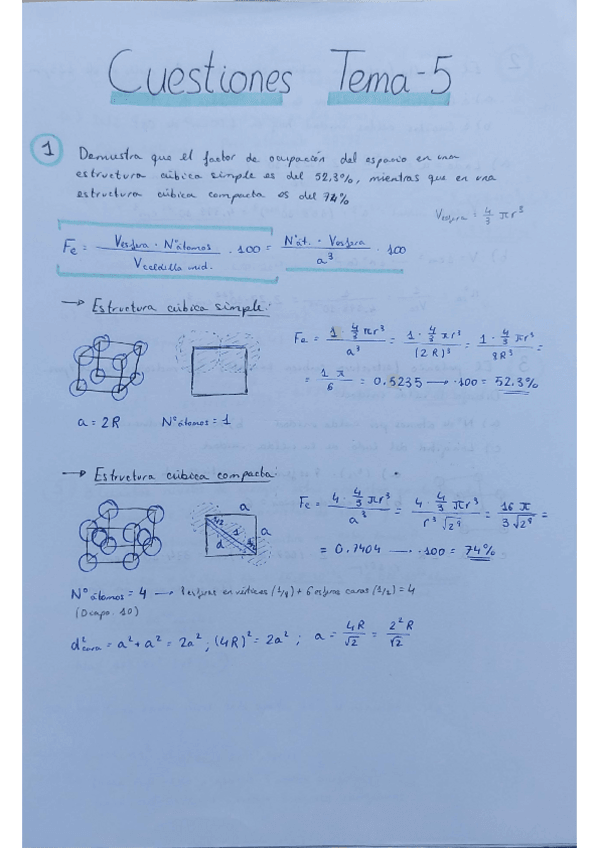 Cuestiones Tema-5
1 Demuestra que el factor de ocupación del espacio en una
estructura cúbica simple es del 52,3%, mientras que en una
estructura cúbica compacta es del 74%
Vesfera = 4/3 πr³
Fe = Vesfera · Nºátomos / Vceldilla unid. · 100 = Nºát. · Vesfera / a³ · 100
→ Estructura cúbica simple:
Fe = 1 · 4/3 πr³ / a³ = 1 · 4/3 πr³ / (2R)³ = 1 · 4/3 πr³ / 8R³ =
= 1 π / 6 = 0.5235 → ·100 = 52.3%
a = 2R Nºátomos = 1
→ Estructura cúbica compacta:
a
a
d
Fe = 4 · 4/3 πr³ / a³ = 4 · 4/3 πr³ / r³ √2⁹ = 16 π / 3 √2⁹ =
= 0.7404 → ·100 = 74%
Nº átomos = 4 → 8 esferas en vértices (1/8) + 6 esferas caras (1/2) = 4
d²cara = a² + a² = 2a² ; (4R)² = 2a² ; a = 4R / √2 = 2² R / √2